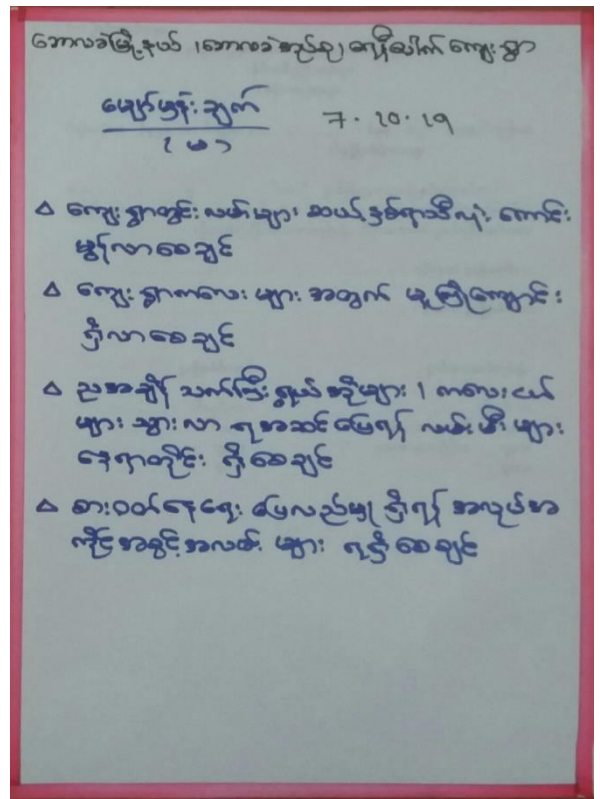 ဘောလခဲမြို့နယ် ၊ ဘောလခဲအုပ်စု ကျေးရွာ
မျှော်မှန်းချက်
(မ)
7.10.19
△ ကျေးရွာတွင်း လမ်းများ ဆယ့်နှစ်ရာသီလုံး ကောင်း
မွန်လာစေချင်
△ ကျေးရွာကလေးများ အတွက် မူကြိုကျောင်း
ရှိလာစေချင်
△ ညအချိန် သက်ကြီးရွယ်အိုများ ၊ ကလေးငယ်
များ သွားလာ ရအဆင်ပြေရန် လမ်းမီးများ
နေရာတိုင်း ရှိစေချင်
△ စားဝတ်နေရေး ပြေလည်မှု ရှိရန် အလုပ်အ
ကိုင်အခွင့်အလမ်း များ ရရှိစေချင်